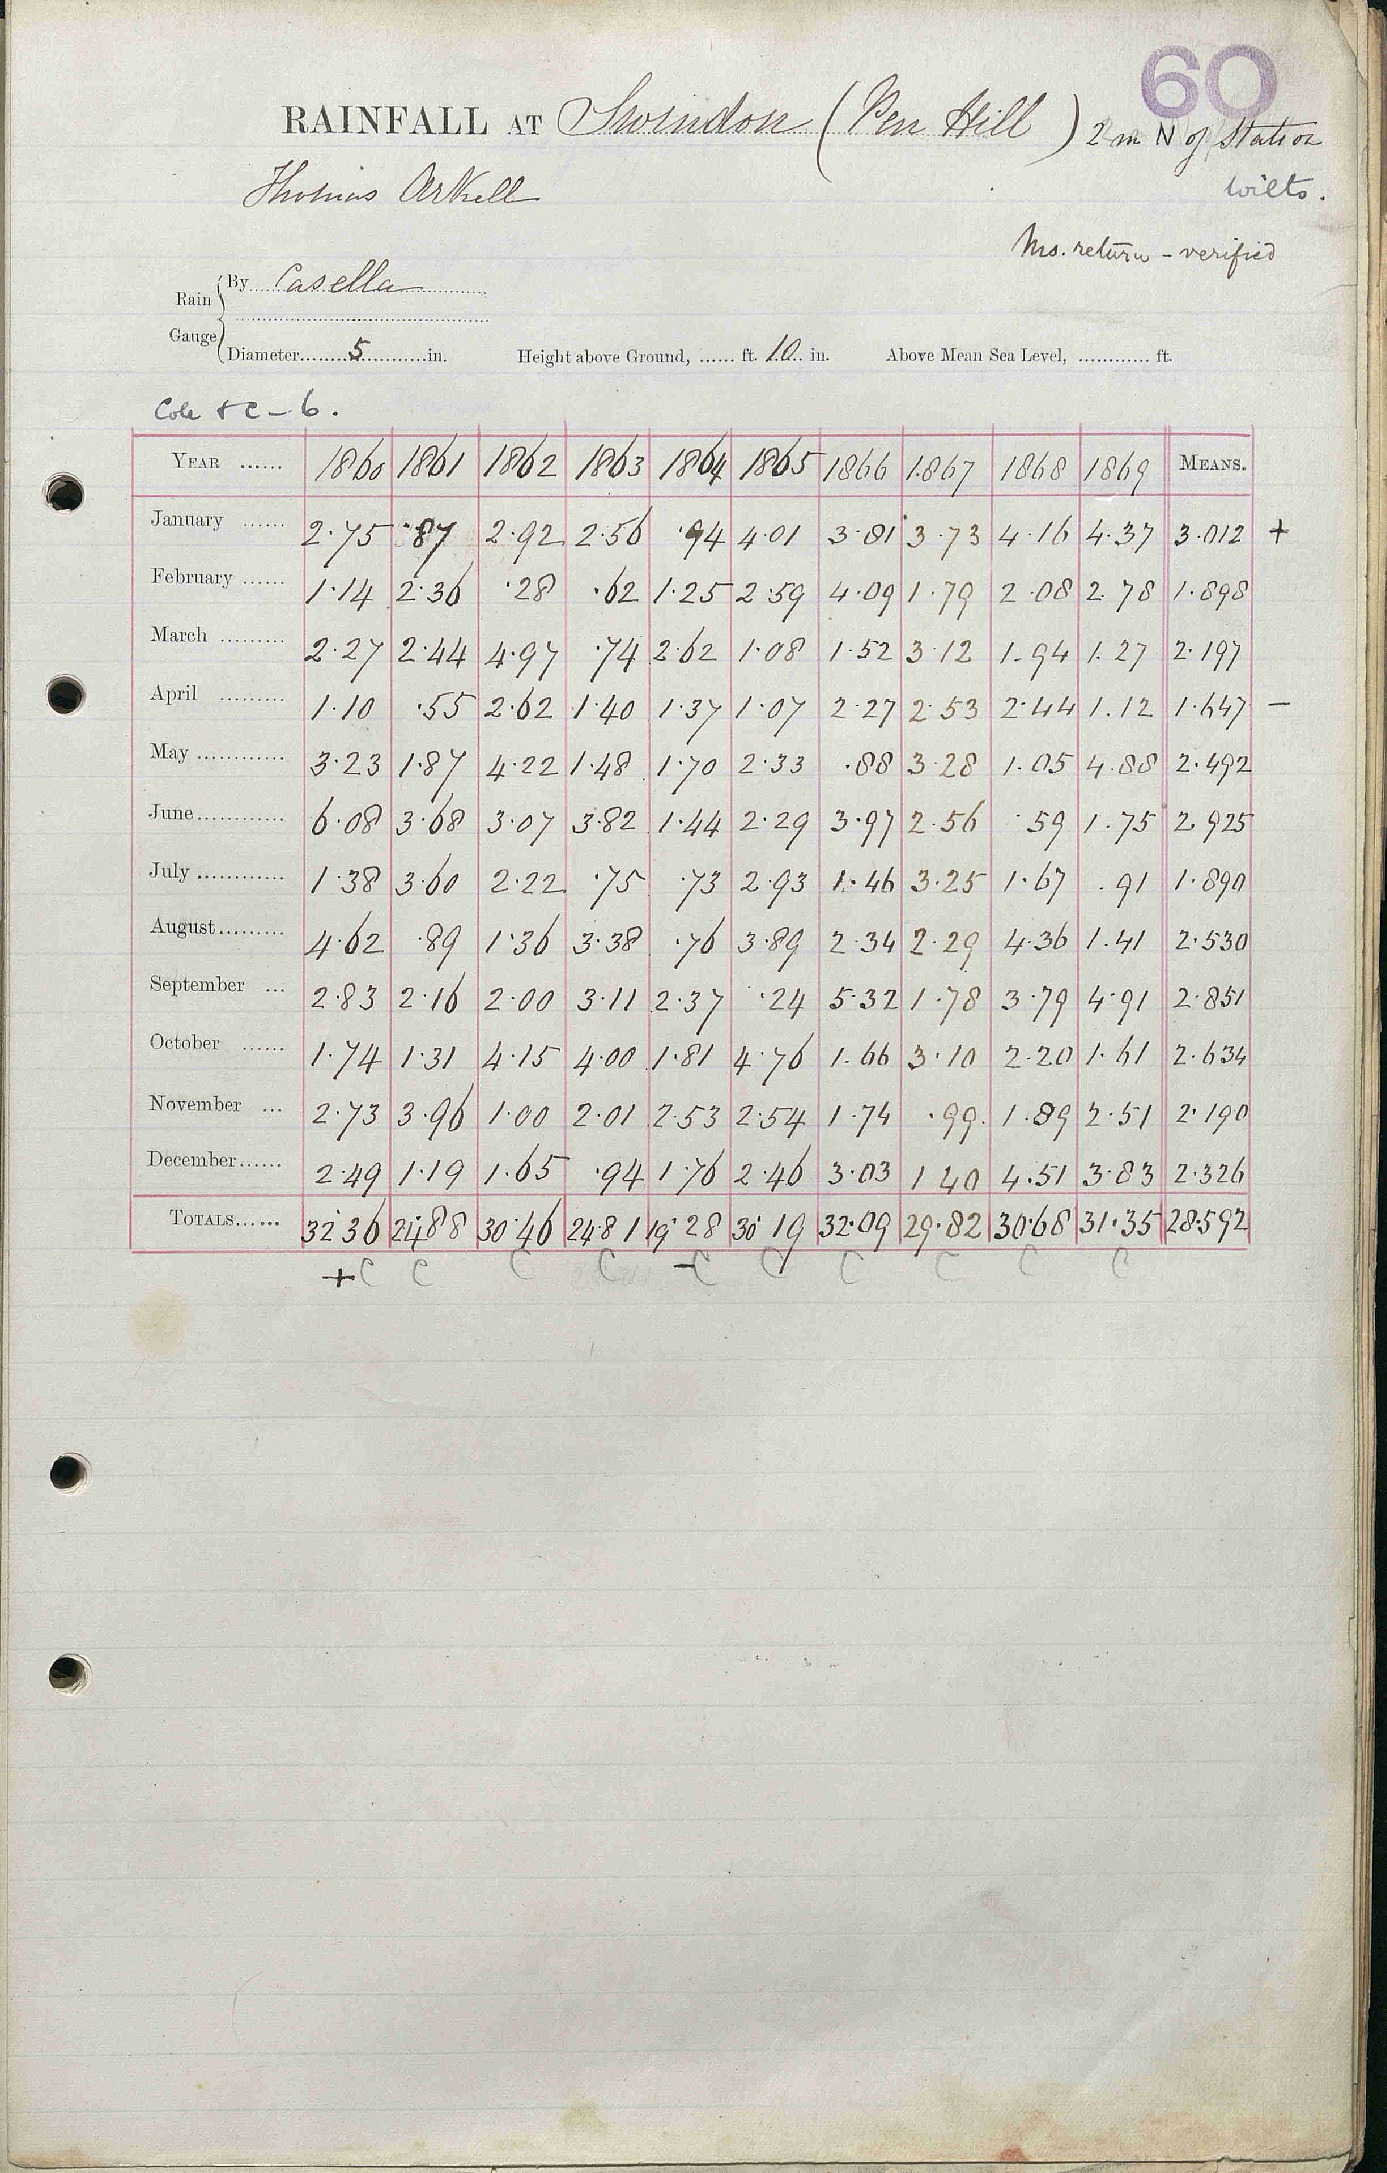 60
RAINFALL AT Swindon (Pen Hill) 2 m N of Station
Thomas Arkell
Wilts.
Ms. return - verified
Rain Gauge { By Casella
Diameter 5 in. Height above Ground, ...... ft. 10 in. Above Mean Sea Level, ............ ft.
YEAR ...... 1860 1861 1862 1863 1864 1865 1866 1867 1868 1869 MEANS.
January ...... 2.75 .87 2.92 2.56 .94 4.01 3.81 3.73 4.16 4.37 3.012 +
February ...... 1.14 2.36 .28 .62 1.25 2.59 4.09 1.79 2.08 2.78 1.898
March ......... 2.27 2.44 4.97 .74 2.62 1.08 1.52 3.12 1.94 1.27 2.197
April ......... 1.10 .55 2.62 1.40 1.37 1.07 2.27 2.53 2.44 1.12 1.647 -
May ............ 3.23 1.87 4.22 1.48 1.70 2.33 .88 3.28 1.05 4.88 2.492
June ............ 6.08 3.68 3.07 3.82 1.44 2.29 3.97 2.56 .59 1.75 2.925
July ............ 1.38 3.60 2.22 .75 .73 2.93 1.46 3.25 1.67 .91 1.890
August ......... 4.62 .89 1.36 3.38 .76 3.89 2.34 2.29 4.36 1.41 2.530
September ... 2.83 2.16 2.00 3.11 2.37 .24 5.32 1.78 3.79 4.91 2.851
October ...... 1.74 1.31 4.15 4.00 1.81 4.76 1.66 3.10 2.20 1.61 2.634
November ... 2.73 3.96 1.00 2.01 2.53 2.54 1.74 .99 1.89 2.51 2.190
December ...... 2.49 1.19 1.65 .94 1.76 2.46 3.03 1.40 4.51 3.83 2.326
TOTALS ...... 32.36 24.88 30.46 24.81 19.28 30.19 32.09 29.82 30.68 31.35 28.592
+ C C C C - C C C C C C